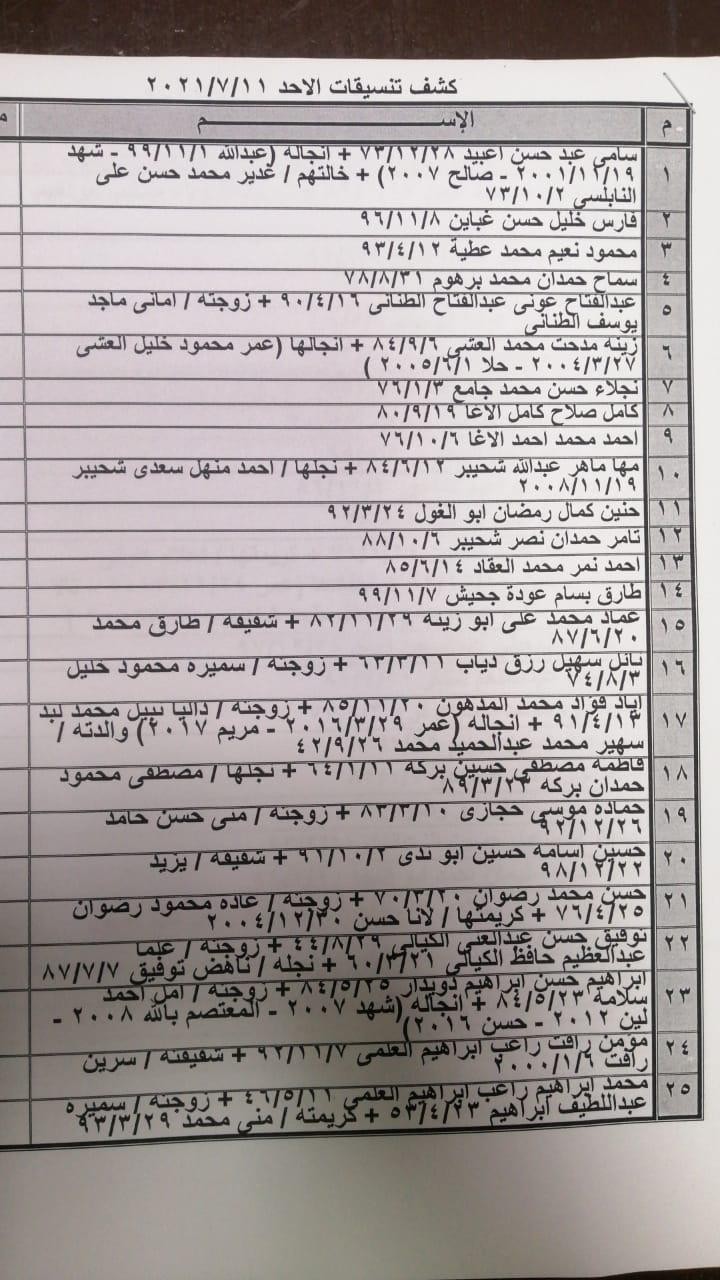 كشف تنسيقات الاحد ٢٠٢١/٧/١١
م الإســـــــــم م
١ سامى عبد حسن اعبيد ٧٣/١٢/٢٨ + انجاله (عبدالله ٩٩/١١/١ - شهد
٢٠٠١/١٢/١٩ - صالح ٢٠٠٧) + خالتهم / غدير محمد حسن على
النابلسى ٧٣/١٠/٢
٢ فارس خليل حسن غباين ٩٦/١١/٨
٣ محمود نعيم محمد عطية ٩٣/٤/١٢
٤ سماح حمدان محمد برهوم ٧٨/٨/٣١
٥ عبدالفتاح عونى عبدالفتاح الطنانى ٩٠/٤/١٦ + زوجته / امانى ماجد
يوسف الطنانى
٦ زينه مدحت محمد العشى ٨٤/٩/٦ + انجالها (عمر محمود خليل العشى
٢٠٠٤/٣/٢٧ - حلا ٢٠٠٥/٦/١ )
٧ نجلاء حسن محمد جامع ٧٦/١/٣
٨ كامل صلاح كامل الاغا ٨٠/٩/١٩
٩ احمد محمد احمد الاغا ٧٦/١٠/٦
١٠ مها ماهر عبدالله شحيبر ٨٤/٦/١٢ + نجلها / احمد منهل سعدى شحيبر
٢٠٠٨/١١/١٩
١١ حنين كمال رمضان ابو الغول ٩٢/٣/٢٤
١٢ تامر حمدان نصر شحيبر ٨٨/١٠/٦
١٣ احمد نمر محمد العقاد ٨٥/٦/١٤
١٤ طارق بسام عودة جحيش ٩٩/١١/٧
١٥ عماد محمد على ابو زينه ٨٢/١١/٢٩ + شقيقه / طارق محمد
٨٧/٦/٢٠
١٦ نائل سهيل رزق دياب ٦٣/٣/١١ + زوجته / سميره محمود خليل
٧٤/٨/٣
١٧ اياد فؤاد محمد المدهون ٨٥/١١/٢٠ + زوجته / داليا نبيل محمد لبد
٩١/٤/١٣ + انجاله (عمر ٢٠١٦/٣/٢٩ - مريم ٢٠١٧) والدته /
سهير محمد عبدالحميد محمد ٤٢/٩/٢٦
١٨ فاطمه مصطفى حسين بركه ٦٤/١/١١ + نجلها / مصطفى محمود
حمدان بركه ٨٩/٣/٢٣
١٩ حماده موسى حجازى ٨٣/٣/١٠ + زوجته / منى حسن حامد
٩٢/١٢/٢٦
٢٠ حسين اسامه حسين ابو ندى ٩١/١٠/٢ + شقيقه / يزيد
٩٨/١٢/٢٢
٢١ حسن محمد رضوان ٧٠/٣/٢٠ + زوجته / غاده محمود رضوان
٧٦/٤/٢٥ + كريمتها / لانا حسن ٢٠٠٤/١٢/٣٠
٢٢ توفيق حسن عبدالغنى الكيالى ٤٤/٨/٢٩ + زوجته / علما
عبدالعظيم حافظ الكيالى ٦٠/٣/٢١ + نجله / ناهض توفيق ٨٧/٧/٧
٢٣ ابراهيم حسن ابراهيم دويدار ٨٤/٥/٢٥ + زوجته / امل احمد
سلامه ٨٤/٥/٢٣ + انجاله (شهد ٢٠٠٧ - المعتصم بالله ٢٠٠٨ -
لين ٢٠١٢ - حسن ٢٠١٦)
٢٤ مؤمن رافت راغب ابراهيم العلمى ٩٢/١١/٧ + شقيقته / سرين
رافت ٢٠٠٠/١/٦
٢٥ محمد ابراهيم راغب ابراهيم العلمى ٤٦/٥/١١ + زوجته / سميره
عبداللطيف ابراهيم ٥٣/٤/٢٣ + كريمته / منى محمد ٩٣/٣/٢٩